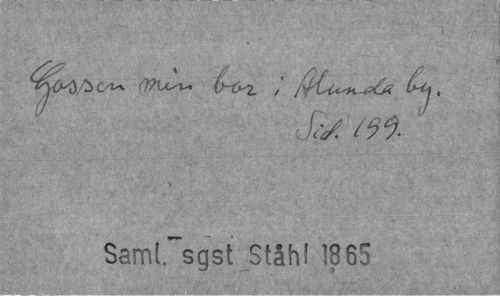 Gossen min bor i Alunda by.
Sid. 199.
Saml. sgst Ståhl 1865